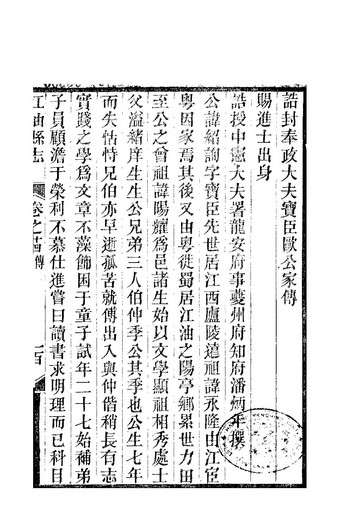 誥封奉政大夫寶臣歐公家傳
賜進士出身
誥授中憲大夫署龍安府事夔州府知府潘炳年撰
公諱紹詢字寶臣先世居江西廬陵遠祖諱永隆由江宦
粵因家焉其後又由粵徙蜀居江油之陽亭鄉累世力田
至公之曾祖諱暘耀爲邑諸生始以文學顯祖相秀處士
父溢緒庠生生公兄弟三人伯仲季公其季也公生七年
而失怙恃兄伯亦早逝孤苦就傅出入與仲偕稍長有志
實踐之學爲文章不藻飾困于童子試年二十七始補弟
子員顧澹于榮利不慕仕進嘗曰讀書求明理而已科目
江油縣志
卷之
傳